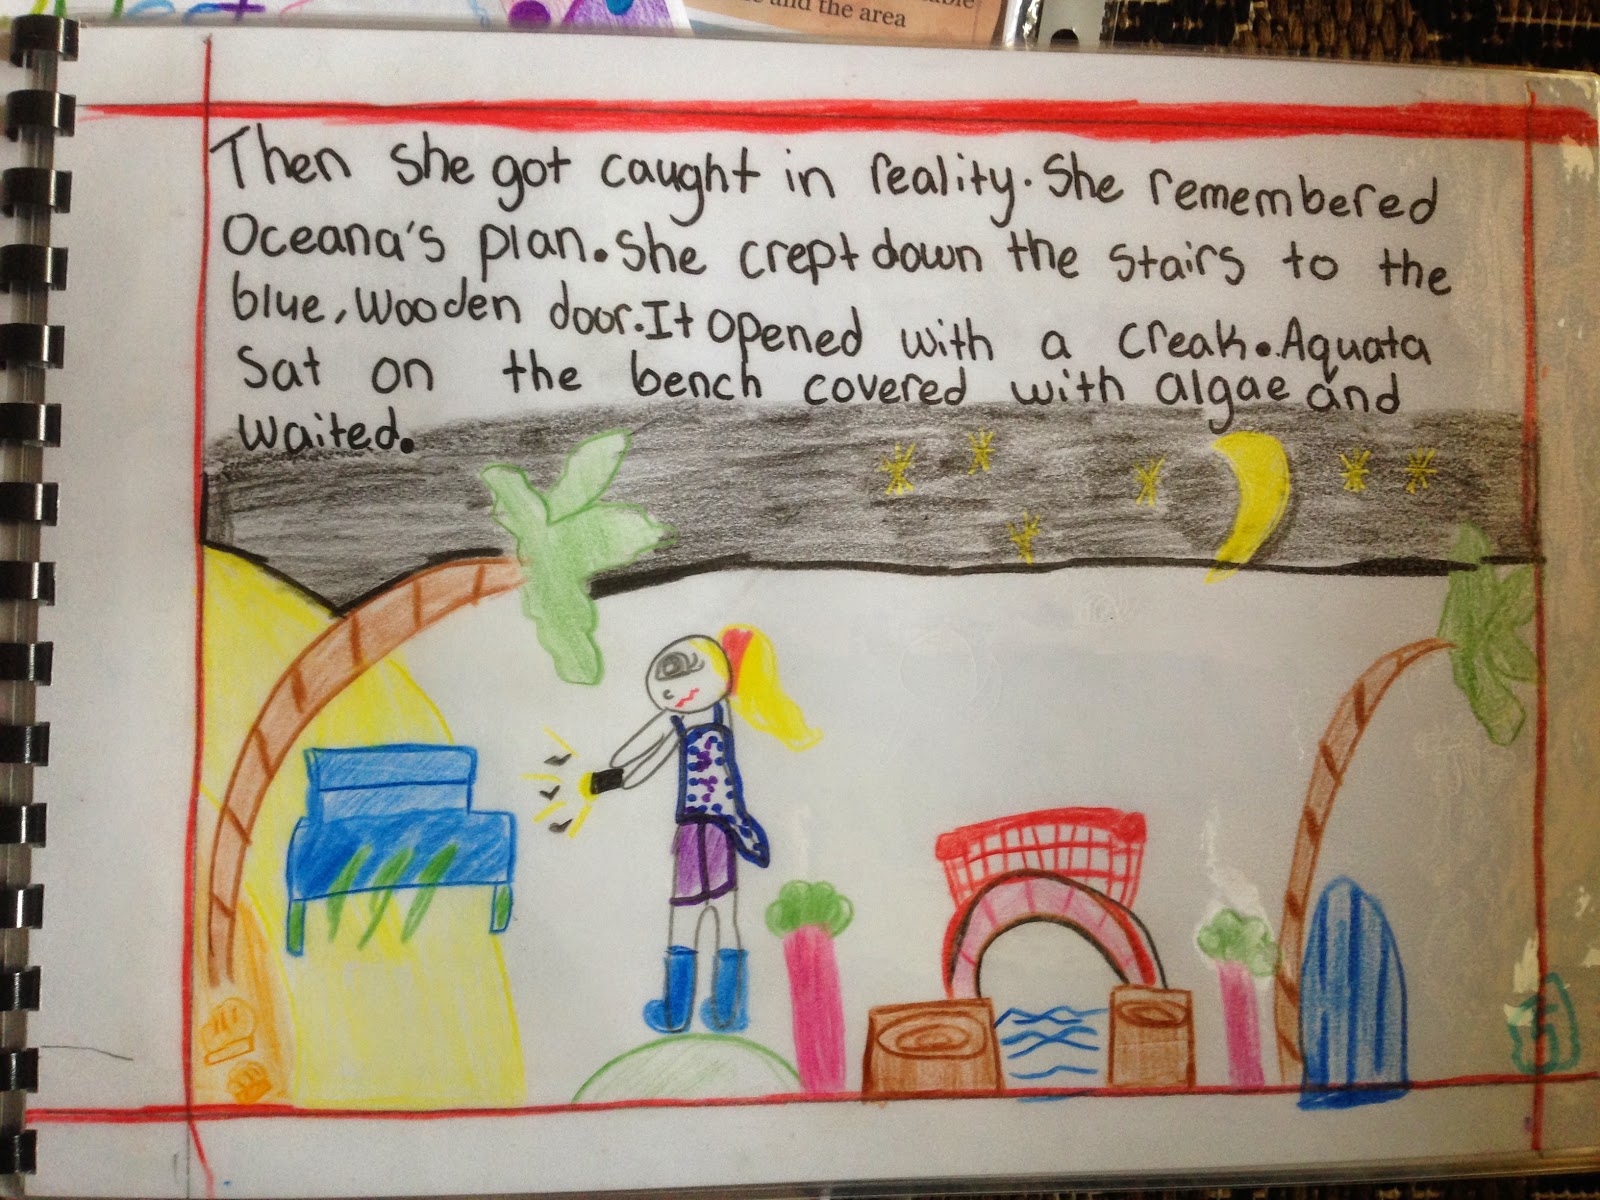 and the area
Then she got caught in reality. She remembered
Oceana's plan. She crept down the stairs to the
blue, wooden door. It opened with a creak. Aquata
sat on the bench covered with algae and
waited.
5